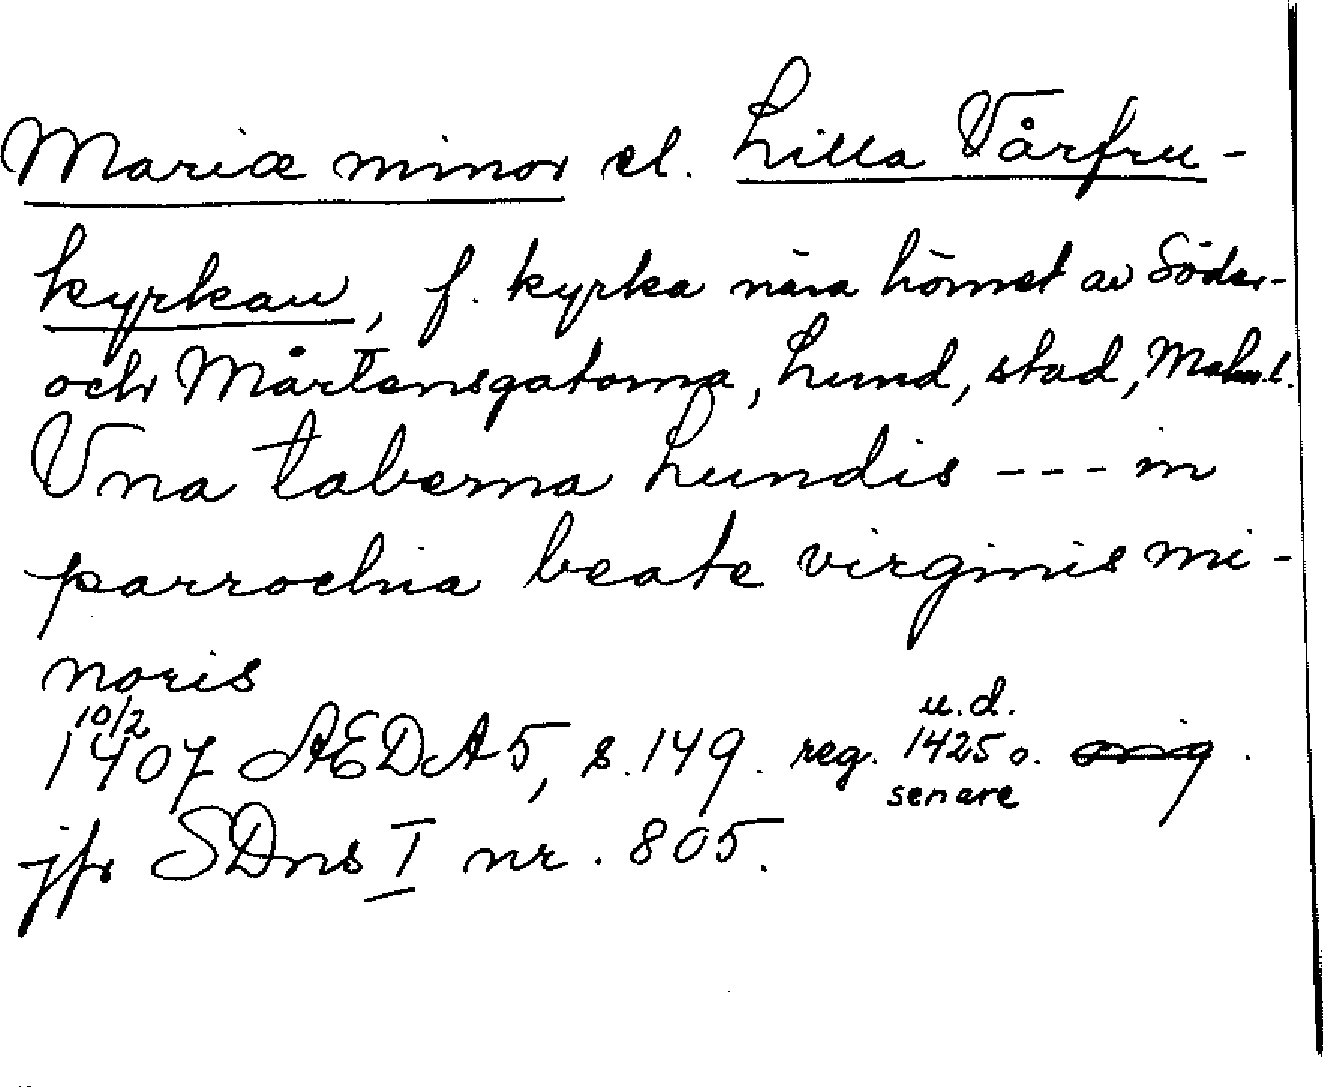 Mariæ minor el. Lilla Vårfru-
kyrkan, f. kyrka nära hörnet av Söder-
och Mårtensgatorna, Lund, stad, Malm.l.
Una taberna Lundis --- in
parrochia beate virginis mi-
noris
10/2 u.d.
1407 AEDA 5, s. 149. reg. 1425 o.
senare
jfr SDns I nr. 805.